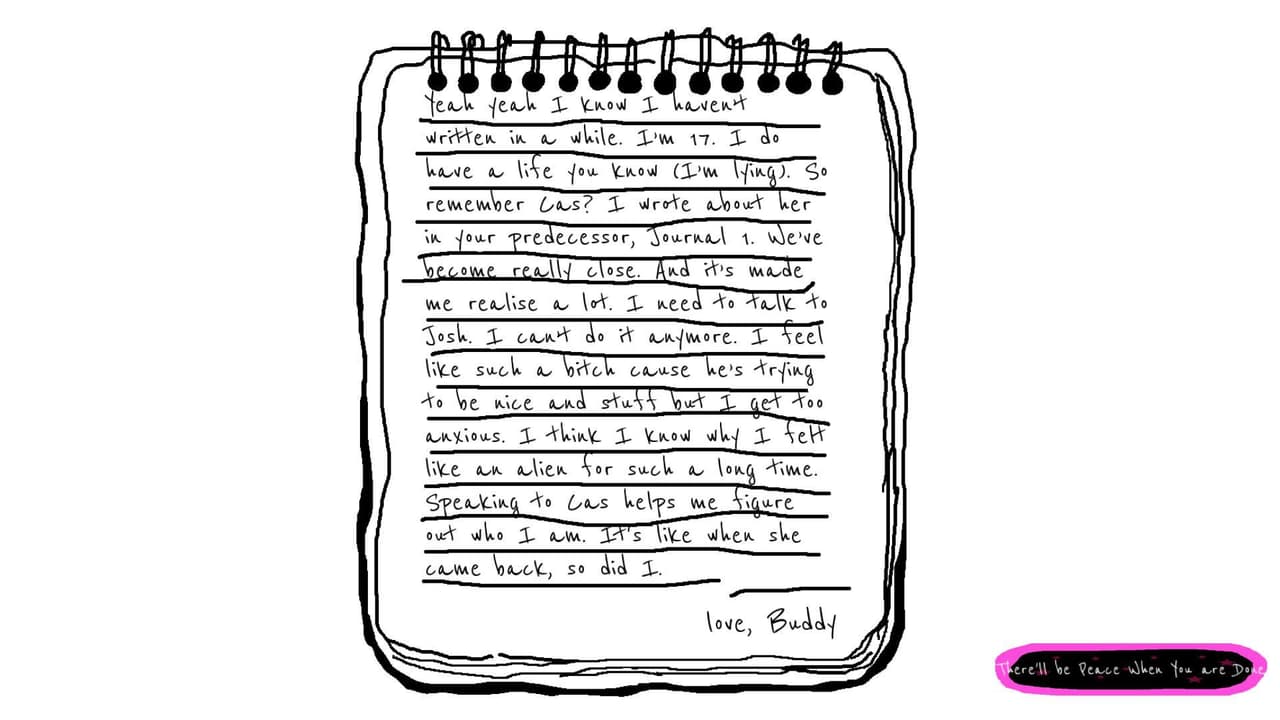 Yeah yeah I know I haven't
written in a while. I'm 17. I do
have a life you know (I'm lying). So
remember Cas? I wrote about her
in your predecessor, Journal 1. We've
become really close. And it's made
me realise a lot. I need to talk to
Josh. I can't do it anymore. I feel
like such a bitch cause he's trying
to be nice and stuff but I get too
anxious. I think I know why I felt
like an alien for such a long time.
Speaking to Cas helps me figure
out who I am. It's like when she
came back, so did I.
love, Buddy
There'll be Peace When You are Done